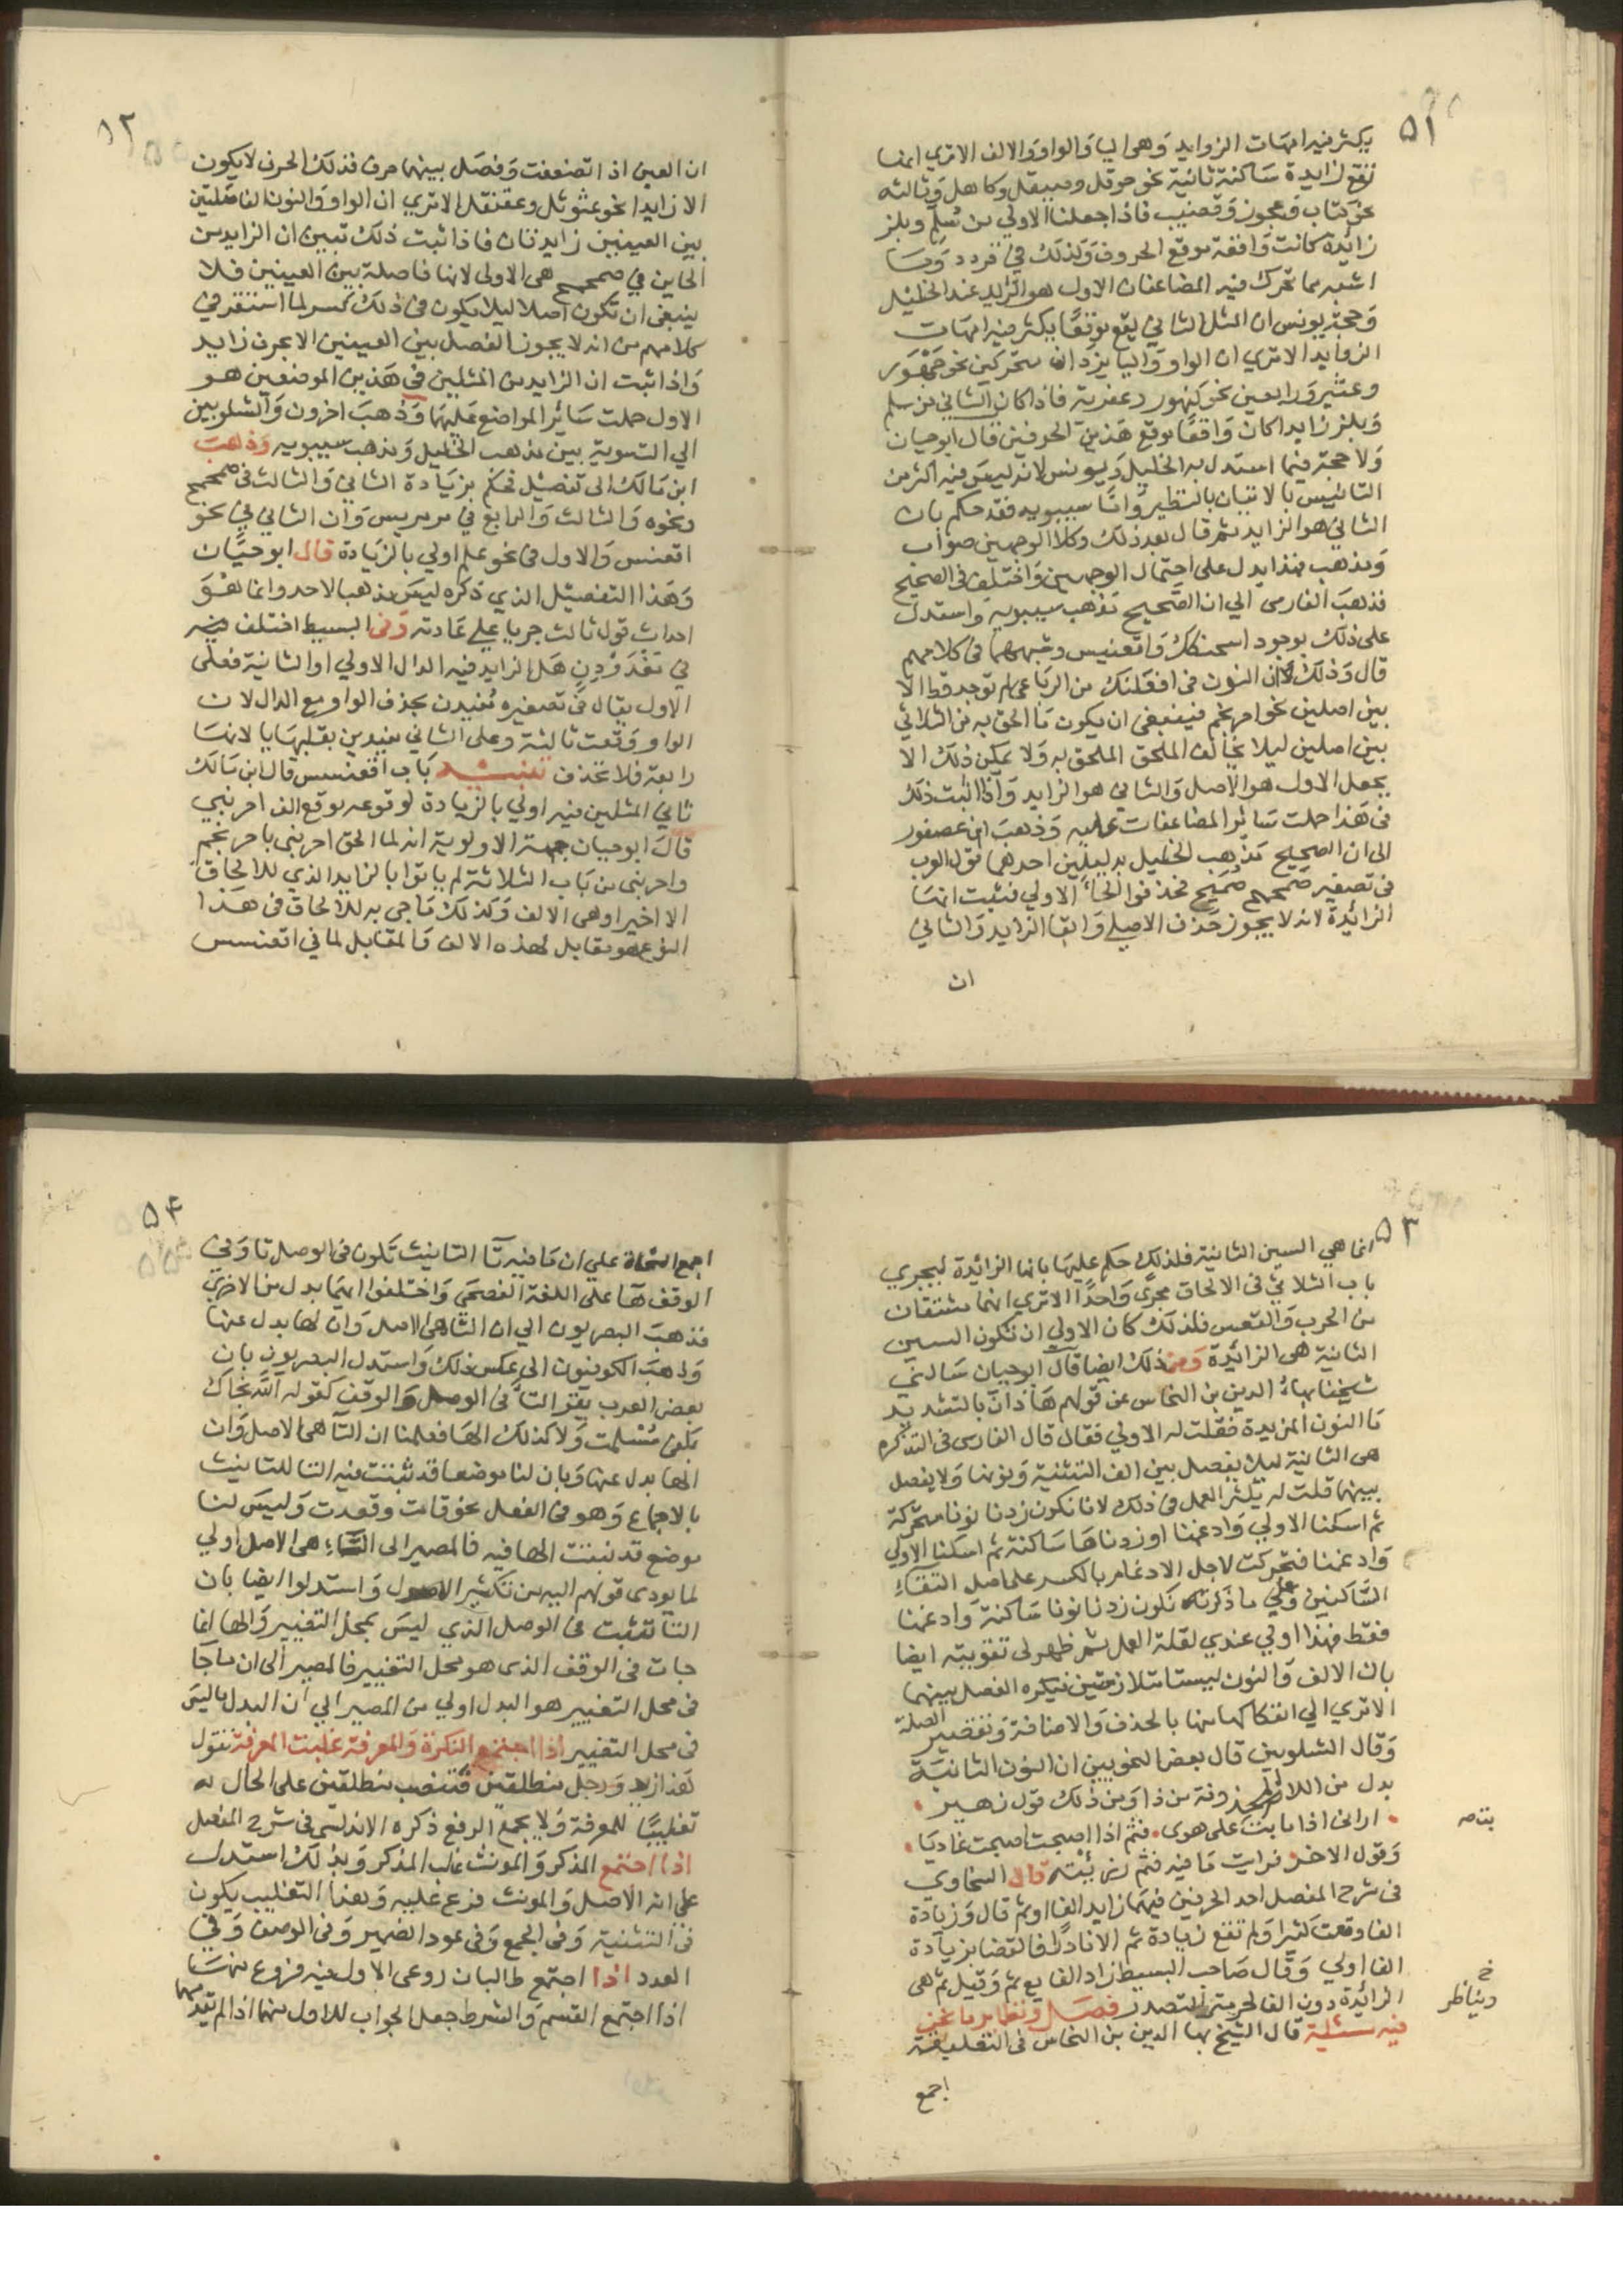 ٥١
يكثر فيه امهات الزوايد وهى اليا والواو والالف الاترى انها
تقع زايدة ساكنة ثانية نحو حوقل وصيقل وكاهل وثالثه
نحو كتاب وعجوز وقضيب فاذا جعلنا الاولى من سلم وبلز
زائدة كانت واقعة موقع الحروف وكذلك في قردد وما
اشبهه مما تحرك فيه المضاعفان الاول هو الزايد عند الخليل
وحجة يونس ان المثل الثانى يقع موقعا يكثر فيه امهات
الزوايد الاترى ان الواو واليا يزدان متحركين نحو جهور
وعثير ورابعين نحو كنهور وعفرية فاذا كان الثانى من سلم
وبلز زايدا كان واقعا موقع هذين الحرفين قال ابو حيان
ولا حجة فيما استدل به الخليل ويونس لانه ليس فيه اكثر من
التانيس بالاتيان بالنظير واما سيبويه فقد حكم بان
الثاني هو الزايد ثم قال بعد ذلك وكلا الوجهين صواب
ومذهب هذا يدل على احتمال الوجهين واختلف في الصحيح
فذهب الفارسى الي ان الصحيح مذهب سيبويه واستدل
على ذلك بوجود اسحنكك واقعنسس وشبههما في كلامهم
قال وذلك لان النون في افعنلل من الرباعى لم توجد قط الا
بين اصلين نحو احرنجم فينبغى ان يكون ما الحق به من الثلاثي
بين اصلين ليلا يخالف الملحق الملحق به ولا يمكن ذلك الا
بجعل الاول هو الاصل والثاني هو الزايد واذا ثبت ذلك
في هذا حملت سائر المضاعفات عليه وذهب ابن عصفور
الى ان الصحيح مذهب الخليل بدليلين احدهما قول العرب
في تصغير صمحمح صميمح فحذفوا الحاء الاولي فثبت انها
الزائدة لانه لا يجوز حذف الاصلي وابقا الزايد والثاني
ان
٥٢
ان العين اذا تضعفت وفصل بينهما حرف فذلك الحرف لا يكون
الا زايدا نحو عثوثل وعقنقل الاتري ان الواو والنون الفاصلتين
بين العينين زايدتان فاذا ثبت ذلك تبين ان الزايد من
الحاين في صمحمح هى الاولى لانها فاصلة بين العينين فلا
ينبغى ان تكون اصلا ليلا يكون في ذلك كسر لما استقر في
كلامهم من انه لا يجوز الفصل بين العينين الا بحرف زايد
واذا ثبت ان الزايد من المثلين في هذين الموضعين هو
الاول حملت سائر المواضع عليهما وذهب اخرون والشلوبين
الي التسوية بين مذهب الخليل ومذهب سيبويه وذهب
ابن مالك الى تفصيل فحكم بزيادة الثاني والثالث في صمحمح
ونحوه والثالث والرابع في مرمريس وان الثاني في نحو
اقعنسس والاول في نحو علم اولي بالزيادة قال ابو حيان
وهذا التفصيل الذي ذكره ليس مذهبا لاحد وانما هو
احداث قول ثالث جريا على عادته وفي البسيط اختلف فيه
في غدودن هل الزايد فيه الدال الاولي او الثانية فعلى
الاول يقال في تصغيره غديدن بحذف الواو مع الدال لان
الواو وقعت ثالثة وعلى الثاني غديدين بقلبها يا لانها
رابعة فلا تحذف تنبيه باب اقعنسس قال ابن مالك
ثاني المثلين فيه اولي بالزيادة لوقوعه موقع الف احرنبي
قال ابو حيان جهة الاولوية انه لما الحق احرنبى باحرنجم
واحرنبى من باب الثلاثة لم ياتوا بالزايد الذي للالحاق
الا اخيرا وهى الالف وكذلك ما جى به للالحاق في هذا
النوع هو مقابل لهذه الالف والمقابل لها في اقعنسس
٥٣
انما هي السين الثانية فلذلك حكم عليها بانها الزائدة ليجري
باب الثلاثي في الالحاق مجرى واحدا الاتري انهما مشتقان
من الحرب والقعس فلذلك كان الاولي ان تكون السين
الثانية هى الزائدة ومن ذلك ايضا قال ابو حيان سالني
شيخنا بهاء الدين بن النحاس عن قولهم هاذان بالتشديد
ما النون المزيدة فقلت له الاولي فقال قال الفارسى في التذكره
هى الثانية ليلا يفصل بين الف التثنية ونونها ولا يفصل
بينهما قلت له يكثر العمل في ذلك لانا نكون زدنا نونا متحركة
ثم اسكنا الاولي وادغمنا او زدناها ساكنة ثم اسكنا الاولي
وادغمنا فتحركت لاجل الادغام بالكسر على اصل التقاء
الساكنين وعلي ما ذكرته نكون زدنا نونا ساكنة وادغمنا
فقط فهذا اولي عندي لقلة العمل ثم ظهر لى تقويته ايضا
بان الالف والنون ليستا متلازمتين فيكره الفصل بينهما
الاتري الي انفكاكهما بالحذف والاضافة وتقصير الصلة
وقال الشلوبين قال بعض النحويين ان النون الثانية
بدل من اللام المحذوفة من ذا ومن ذلك قول زهير
اراني اذا ما بت على هوى فثم اذا اصبحت اصبحت غاديا
بت ص
وقول الاخر فرايت ما فيه فثم رزئته قال السخاوي
في شرح المفصل احد الحرفين فيهما زايد الفا او ثم قال وزيادة
الفا وقعت كثيرا ولم تقع زيادة ثم الا نادرا فالقضا بزيادة
الفا اولي وقال صاحب البسيط زاد الفا مع ثم وقيل ثم هى
الزائدة دون الفا لحرمة التصدر فصل ونظاير ما نحن
خ
ويناظر
فيه مسئلة قال الشيخ بها الدين بن النحاس في التعليقة
اجمع
٥٤
اجمع النحاة علي ان ما فيه تا التانيث تكون في الوصل تا وفي
الوقف ها على اللغة الفصحى واختلفوا ايهما بدل من الاخري
فذهب البصريون الي ان التا هى الاصل وان الها بدل عنها
وذهب الكوفيون الى عكس ذلك واستدل البصريون بان
بعض العرب يقر التا في الوصل والوقف كقوله الله نجاك
بكفى مسلمت ولا كذلك الها فعلمنا ان التا هى الاصل وان
الها بدل عنها وبان لنا موضعا قد ثبتت فيه التا للتانيث
بالاجماع وهو في الفعل نحو قامت وقعدت وليس لنا
موضع قد ثبتت الها فيه فالمصير الى التاء هى الاصل اولي
لما يودى قولهم اليه من تكثير الاصول واستدلوا ايضا بان
التا تثبت في الوصل الذي ليس بمحل التغيير والها انما
جات في الوقف الذى هو محل التغيير فالمصير الى ان ما جا
في محل التغيير هو البدل اولي من المصير الي ان البدل ما ليس
في محل التغيير اذا اجتمع النكرة والمعرفة غلبت المعرفة تقول
هذا زيد ورجل منطلقين فتنصب منطلقين على الحال له
تغليبا للمعرفة ولا يجمع الرفع ذكره الاندلسى في شرح المفصل
اذا اجتمع المذكر والمونث غلب المذكر وبذلك استدل
على انه الاصل والمونث فرع عليه وهذا التغليب يكون
في التثنية وفي الجمع وفي عود الضمير وفي الوصف وفي
العدد اذا اجتمع طالبان روعى الاول فيه فروع منها
اذا اجتمع القسم والشرط جعل الجواب للاول منهما اذا لم يتقدمهما